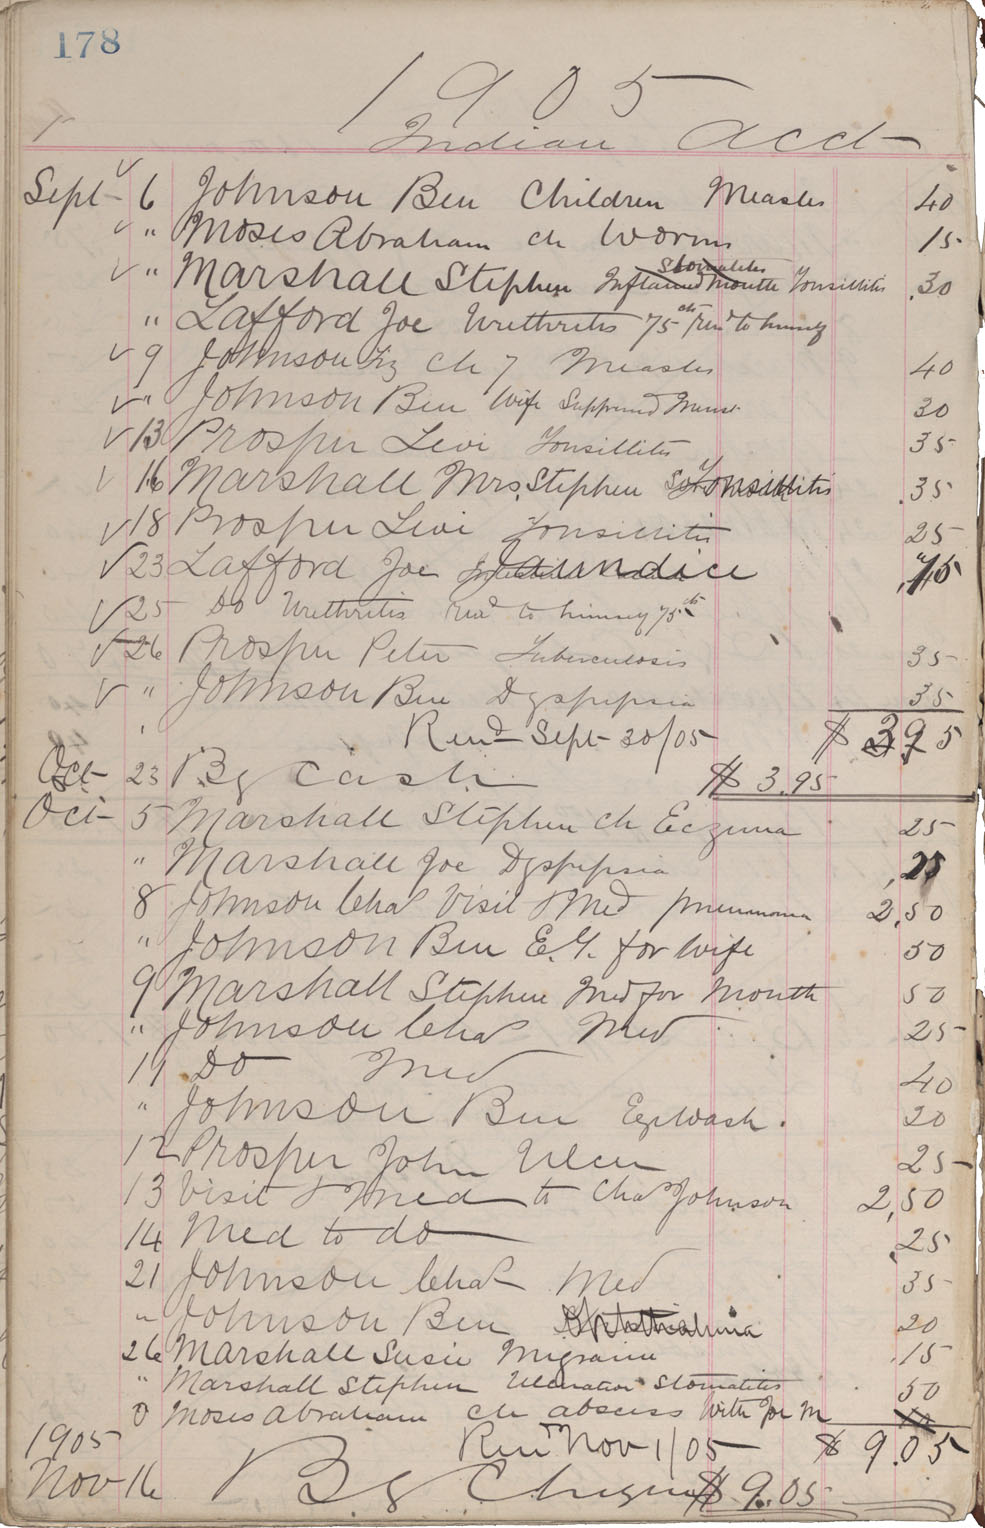 178
1905
Indian Acct
Sept 6 Johnson Ben Children Measles 40
" Moses Abraham ch Worms 15
Stomatitis
" Marshall Stephen Inflamed Mouth Tonsillitis .30
" Lafford Joe Urethritis 75 cts Ren'd to himself
9 Johnson Liz Ch 7 Measles 40
" Johnson Ben Wife Suppressed Mens. 30
13 Prosper Levi Tonsillitis 35
16 Marshall Mrs. Stephen Tonsillitis .35
18 Prosper Levi Tonsillitis 25
23 Lafford Joe Jaundice
25 Do Urethritis Ren'd to himself 75 cts
26 Prosper Peter Tuberculosis 35
" Johnson Ben Dyspepsia 35
Rend Sept 30/05 $ 3 95
Oct 23 By Cash $ 3.95
Oct 5 Marshall Stephen Ch Eczema 25
" Marshall Joe Dyspepsia .25
8 Johnson Chas Visit & Med pneumonia 2,50
" Johnson Ben E.Y. for Wife 50
9 Marshall Stephen Med for Mouth 50
" Johnson Chas Med 25
11 Do Med 40
" Johnson Ben Eyewash. 20
12 Prosper John Ulcer 25
13 Visit & Med to Chas Johnson 2,50
14 Med to do .25
21 Johnson Chas Med 35
" Johnson Ben Ophthalmia 20
26 Marshall Susie Migraine .15
" Marshall Stephen Ulcerative Stomatitis 50
Moses Abraham ch abscess With Joe M
1905 Rend Nov 1/05 $ 9.05
Nov 16 By Cheque $ 9.05